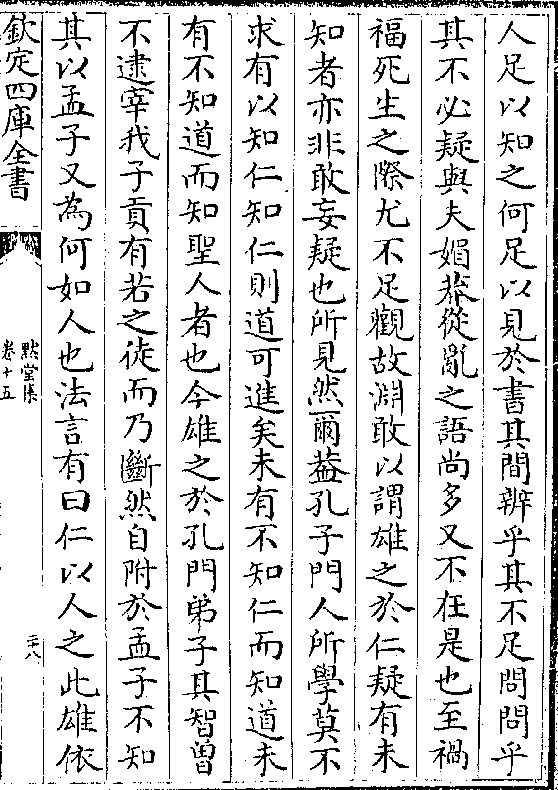 人足以知之何足以見於書其間辨乎其不足問問乎
其不必疑與夫媚莽從亂之語尚多又不在是也至禍
福死生之際尤不足觀故淵敢以謂雄之於仁疑有未
知者亦非敢妄疑也所見然爾葢孔子門人所學莫不
求有以知仁知仁則道可進矣未有不知仁而知道未
有不知道而知聖人者也今雄之於孔門弟子其智曽
不逮宰我子貢有若之徒而乃斷然自附於孟子不知
其以孟子又為何如人也法言有曰仁以人之此雄依
欽定四庫全書
默堂集
卷十五
二十八